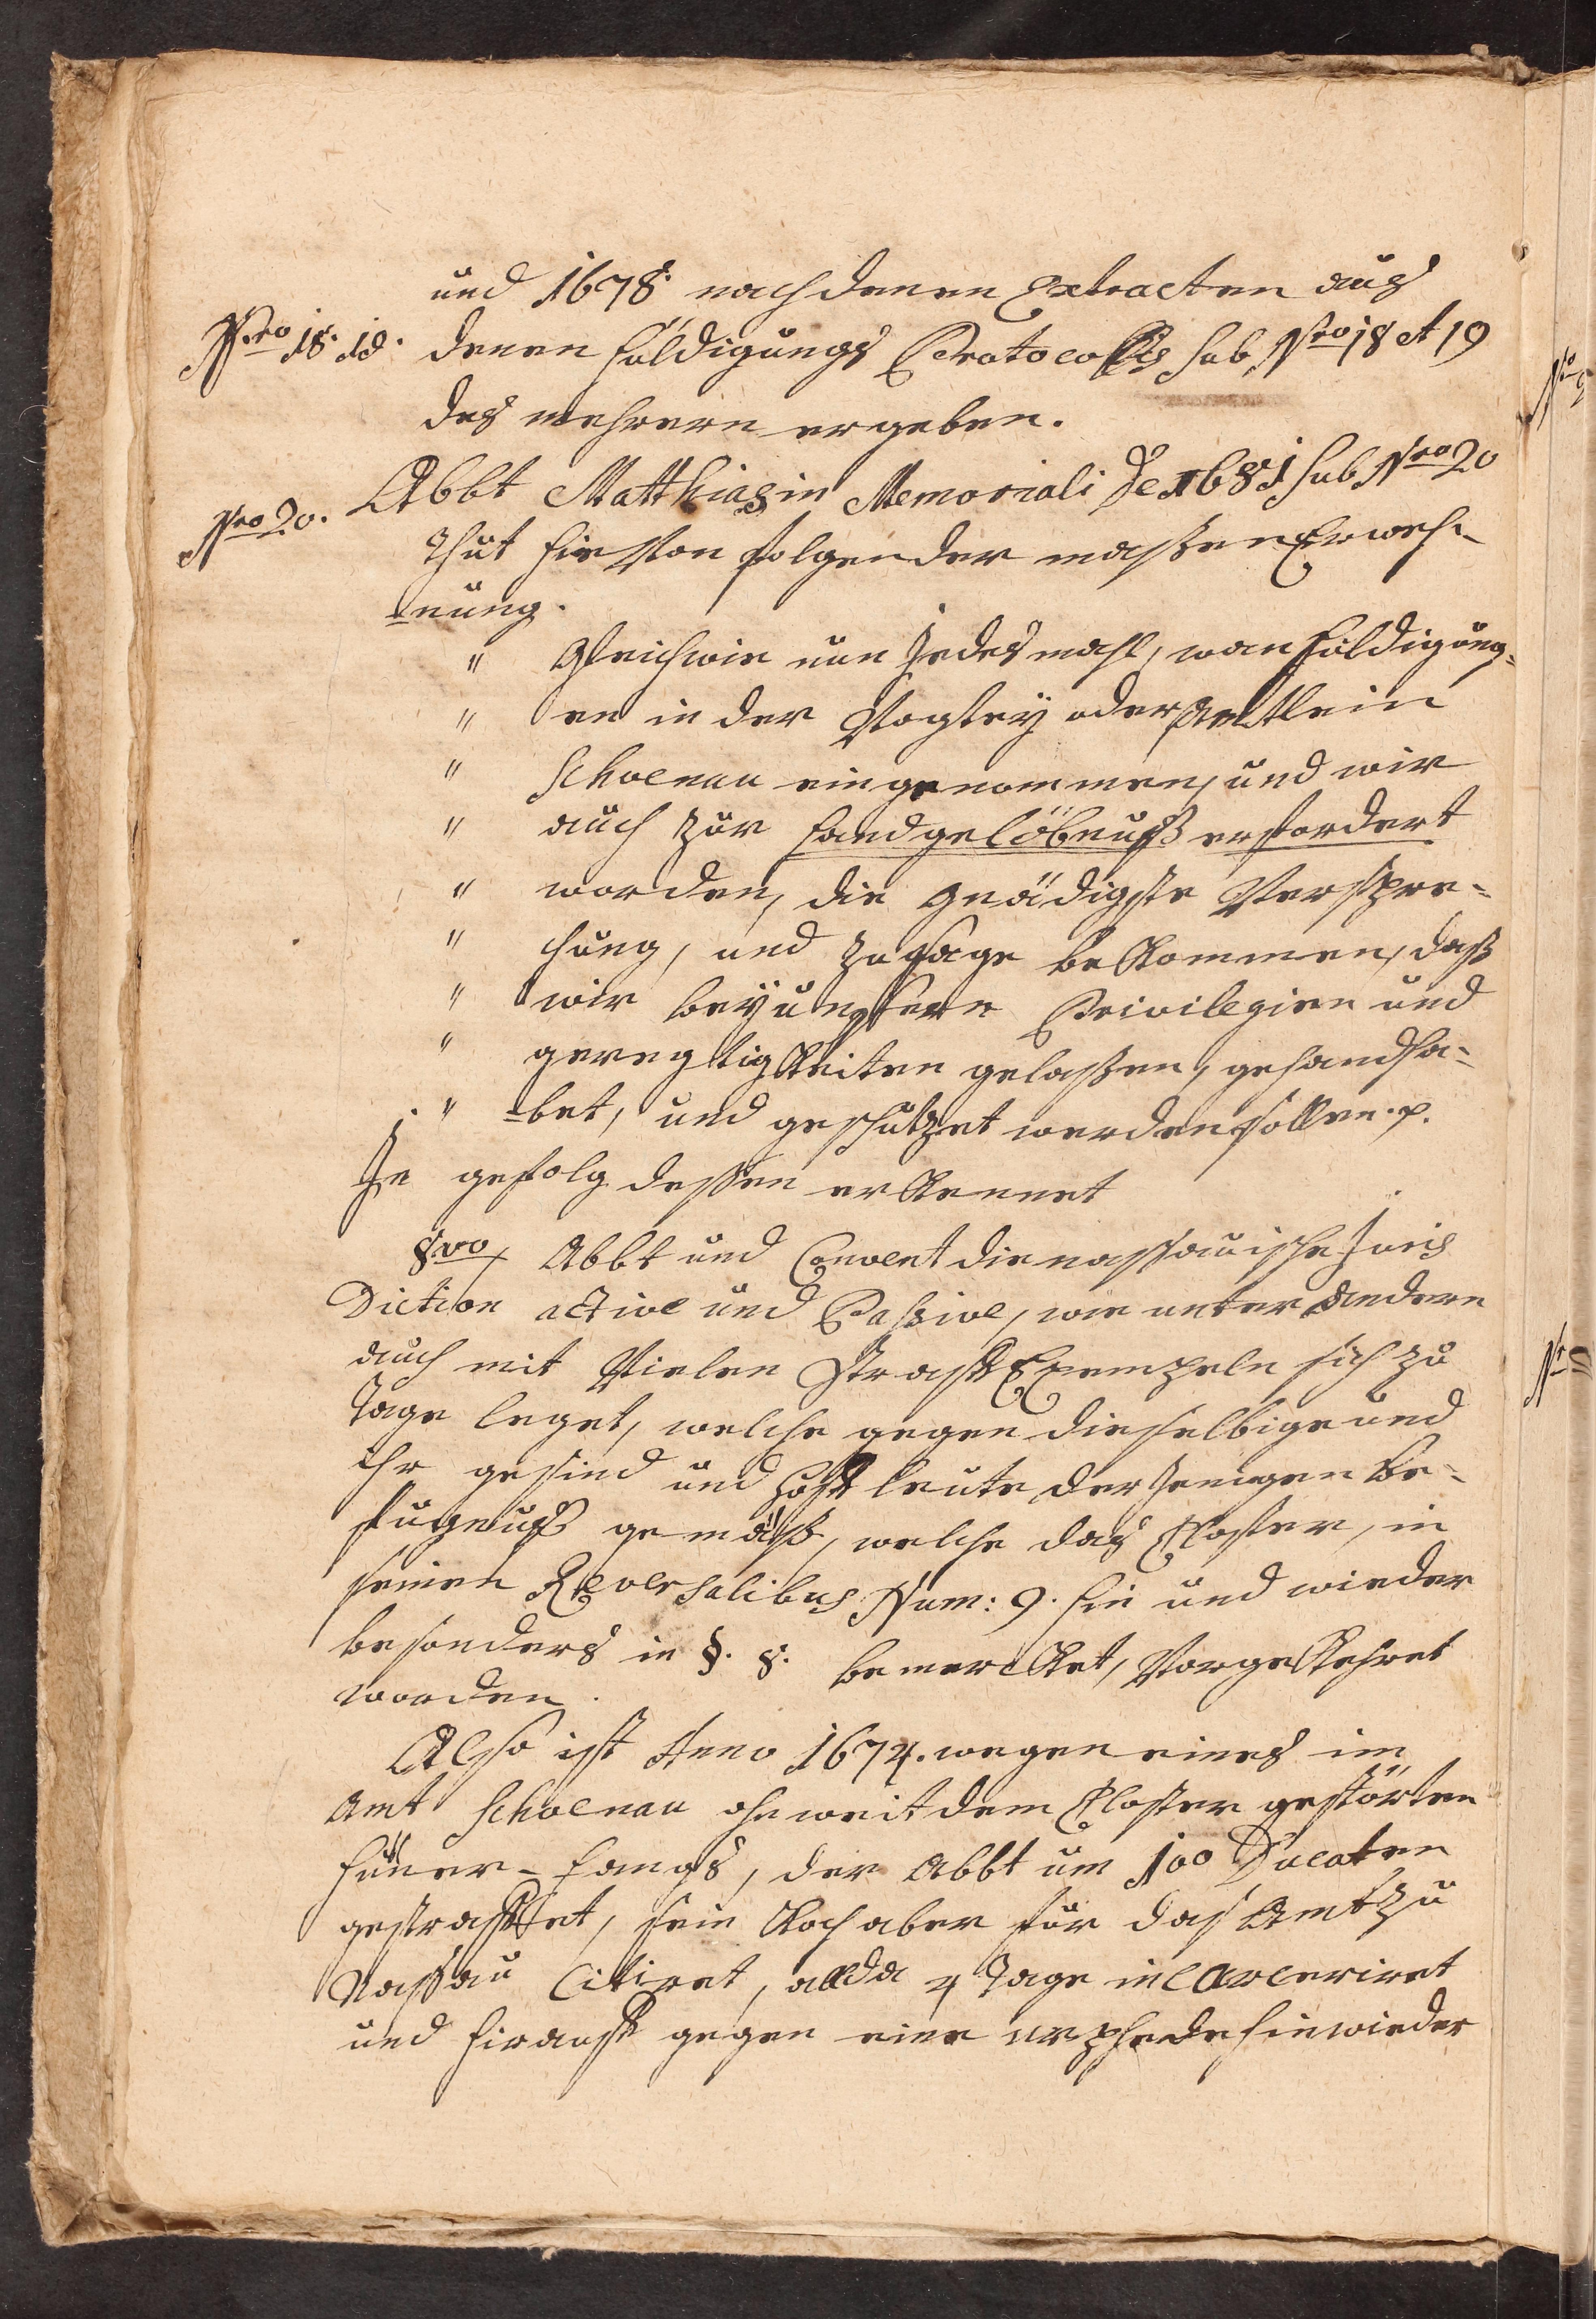 und 1678. nach denen Extracten aus
Nro 18. 19. denen Huldigungs Protocollis sub Nro 18 et 19
des mehrern ergeben.
Nro 20. Abbt Matthias in Memoriali de 1681 sub Nro 20
Thut hie Von folgender maßen Erweh-
-nung.
" Gleichwie nun Jedesmahl, wan Huldigung-
" en in der Vogtey oder Amtlein
" Schoenau eingenommen, und wir
" auch zur Handgelöbnuß erfordert
" worden, die Gnädigste Verspre-
" chung, und Zusage bekommen, daß
" wir bey unsern Privilegien und
" geregtigkeiten gelaßen, gehandha-
" -bet, und geschutzet werden sollen. p.
In gefolg deßen erkennet
8vo Abbt und Convent die nassauische Juris
Diction active und Passive, wie unter andern
auch mit Vielen Straff Exempeln sich zu
Tage leget, welche gegen dieselbige und
ihr gesind und Hoffleute, der Jenigen be-
fugnuß gemäß, welche das Closter, in
seinen Reversalibus Num: 9. hin und wieder
besonders in §. 8. bemercket, Vorgekehret
worden.
Also ist Anno 1674. wegen eines im
Amt Schoenau ohnweit dem Closter gestörten
Hüner-Fangs, der Abbt um 100 Ducaten
gestraffet, sein Koch aber für das Amt zu
Nassau Citiret, allda 4 Tage incarceriret
und hirauff gegen eine urphede hinwieder